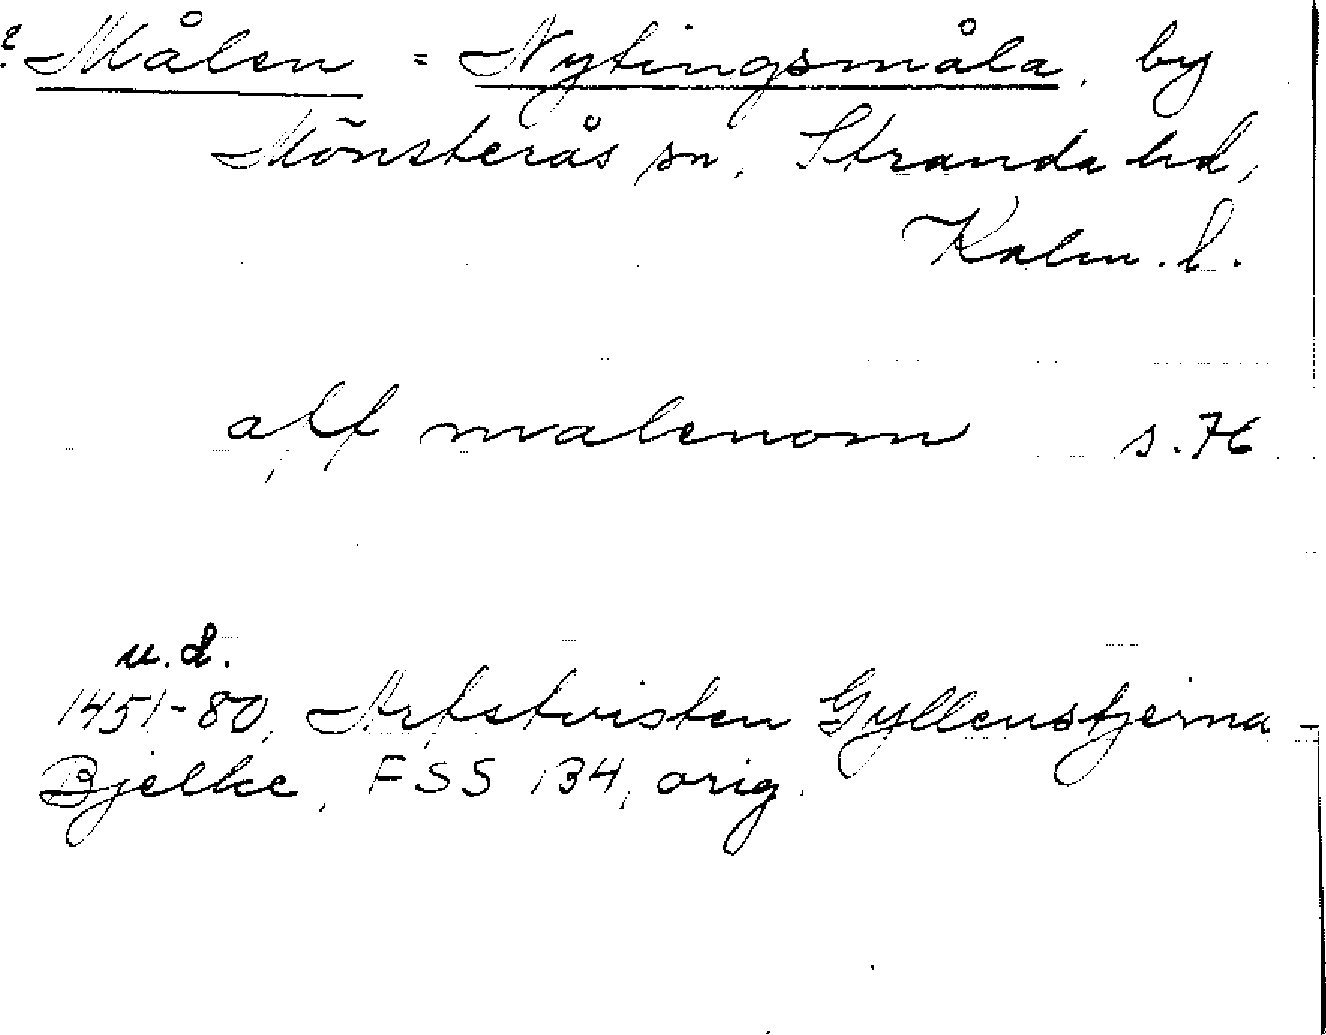 ? Målen = Nytingsmåla, by
Mönsterås sn, Stranda hd,
Kalm. l.
aff malenom s. 76
u. d.
1451-80, Arfstvisten Gyllenstjerna -
Bjelke, FSS 134, orig.